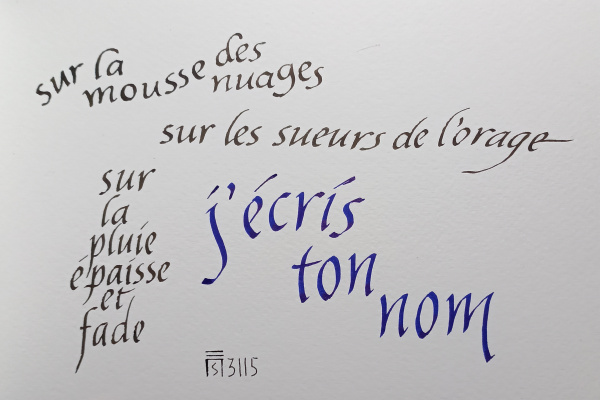 sur la
mousse des
nuages
sur les sueurs de l'orage
sur
la
pluie
épaisse
et
fade
j'écris
ton
nom
3115